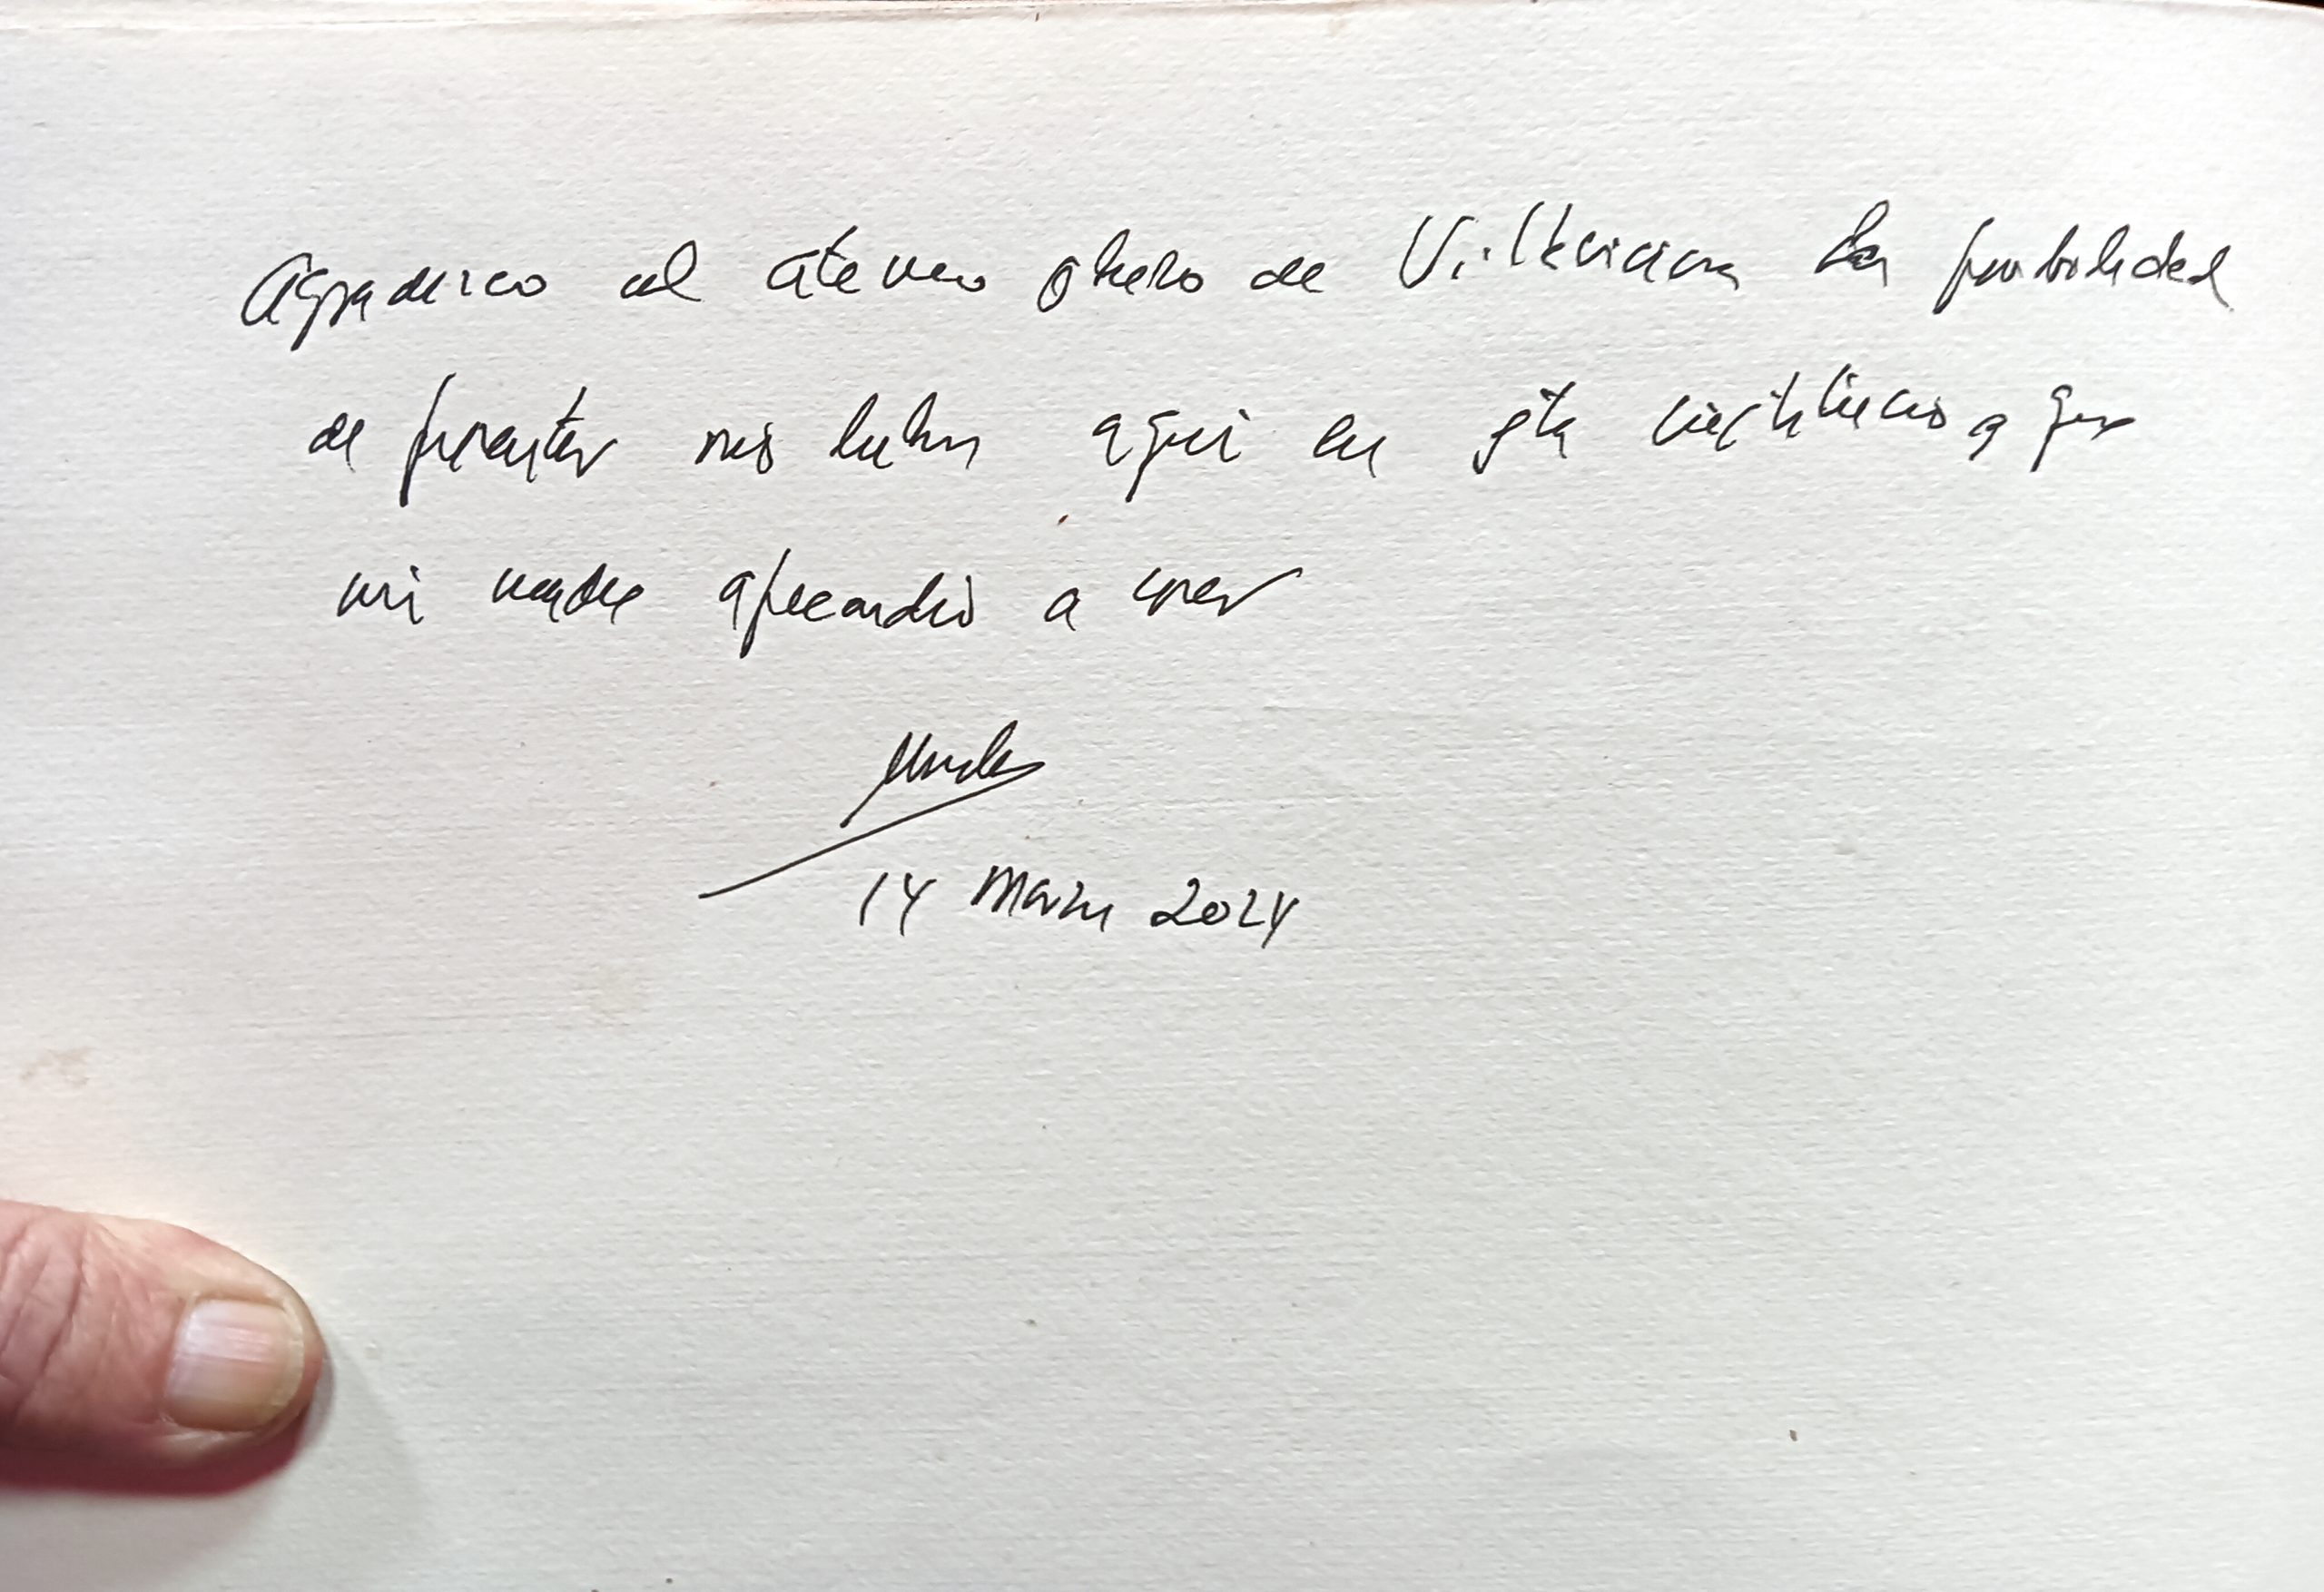 Agradezco al ateneo obrero de Villaviciosa la posibilidad
de presentar mis libros aquí en esta institución a que
mi madre aprendió a
14 Marzo 2024